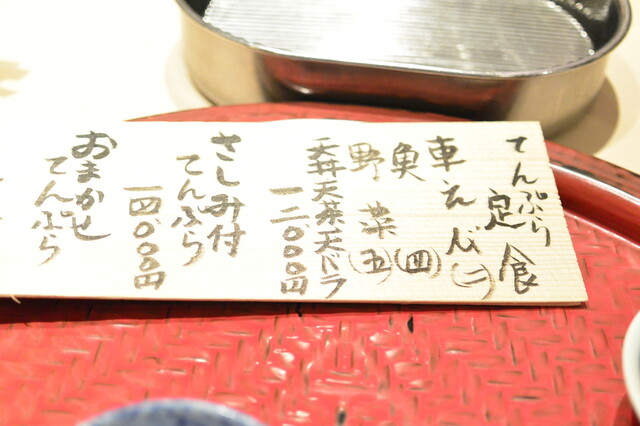 てんぷら定食
車えび(二)
魚(四)
野菜(五)
天丼天茶天ドラ
一二、〇〇〇円
さしみ付
てんぷら
一四、〇〇〇円
おまかせ
てんぷら